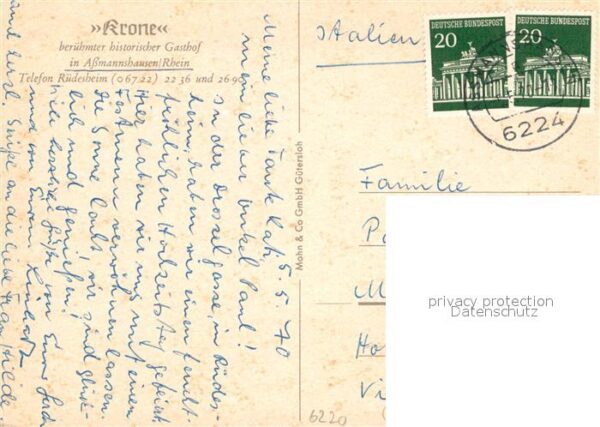 »Krone«
berühmter historischer Gasthof
in Aßmannshausen/Rhein
Telefon Rüdesheim (0 67 22) 22 36 und 26 90
5.5.70
Meine liebe Tante Kati,
mein lieber Onkel Paul!
In der Drosselgasse, in Rüdes-
heim, haben wir einen feucht-
fröhlichen Hochzeitstag gefeiert.
Hier haben wir uns mit einem
Festmenu verwöhnen lassen.
Die Sonne lacht, wir sind glück-
lich und genießen!
Viele herzliche Grüße von Eurer
und von Eurem
und Grüße an die liebe Frau Hilde.
Mohn & Co GmbH Gütersloh
Italien
DEUTSCHE BUNDESPOST
20
DEUTSCHE BUNDESPOST
20
6224
Familie
P
M
Ho
Vi
6220
privacy protection
Datenschutz